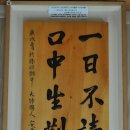 一日不讀
口中生荊
庚戌三月 於旅順獄中 大韓國人 安